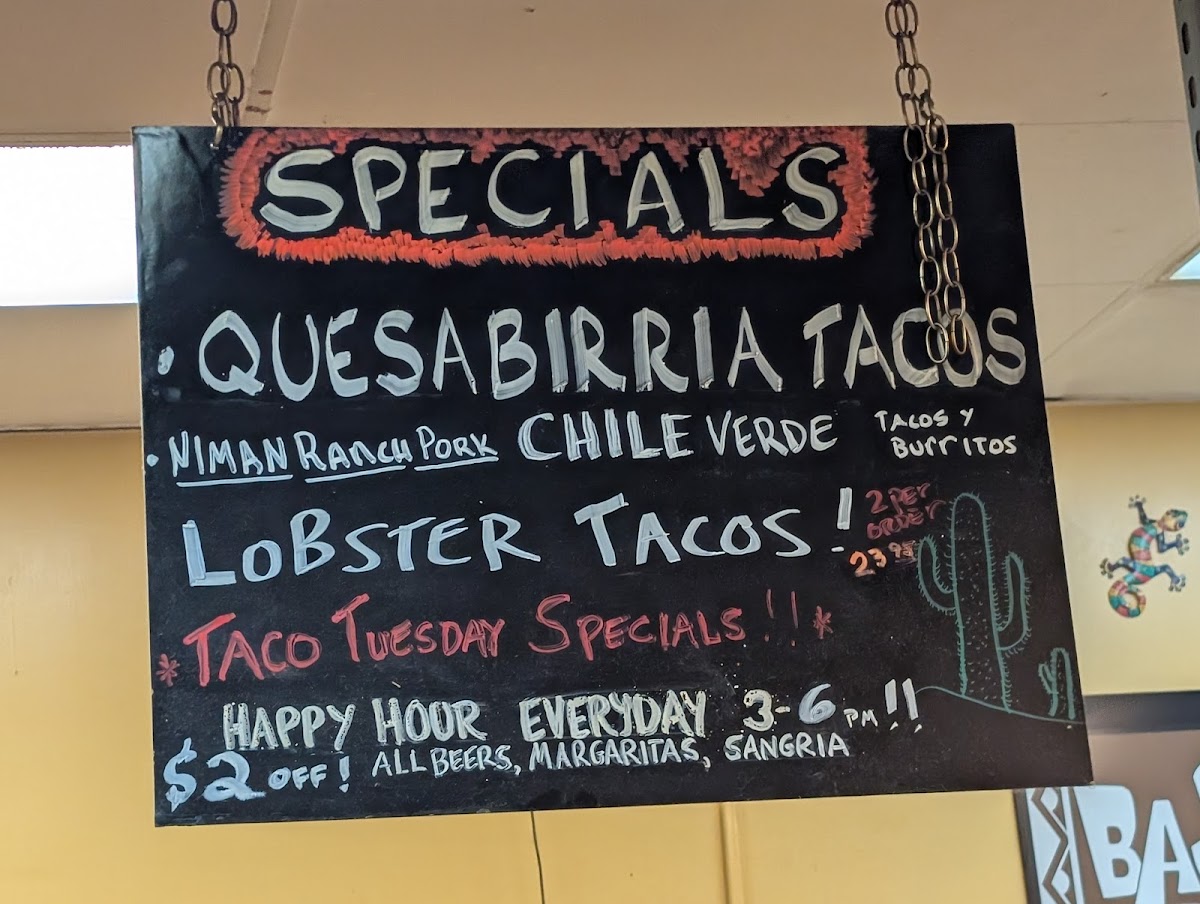 SPECIALS
• QUESABIRRIA TACOS
• NIMAN RANCH PORK CHILE VERDE TACOS Y
BURRITOS
LOBSTER TACOS! 2 PER
ORDER
23.95
*TACO TUESDAY SPECIALS!!*
HAPPY HOUR EVERYDAY 3-6PM!!
$2 OFF! ALL BEERS, MARGARITAS, SANGRIA